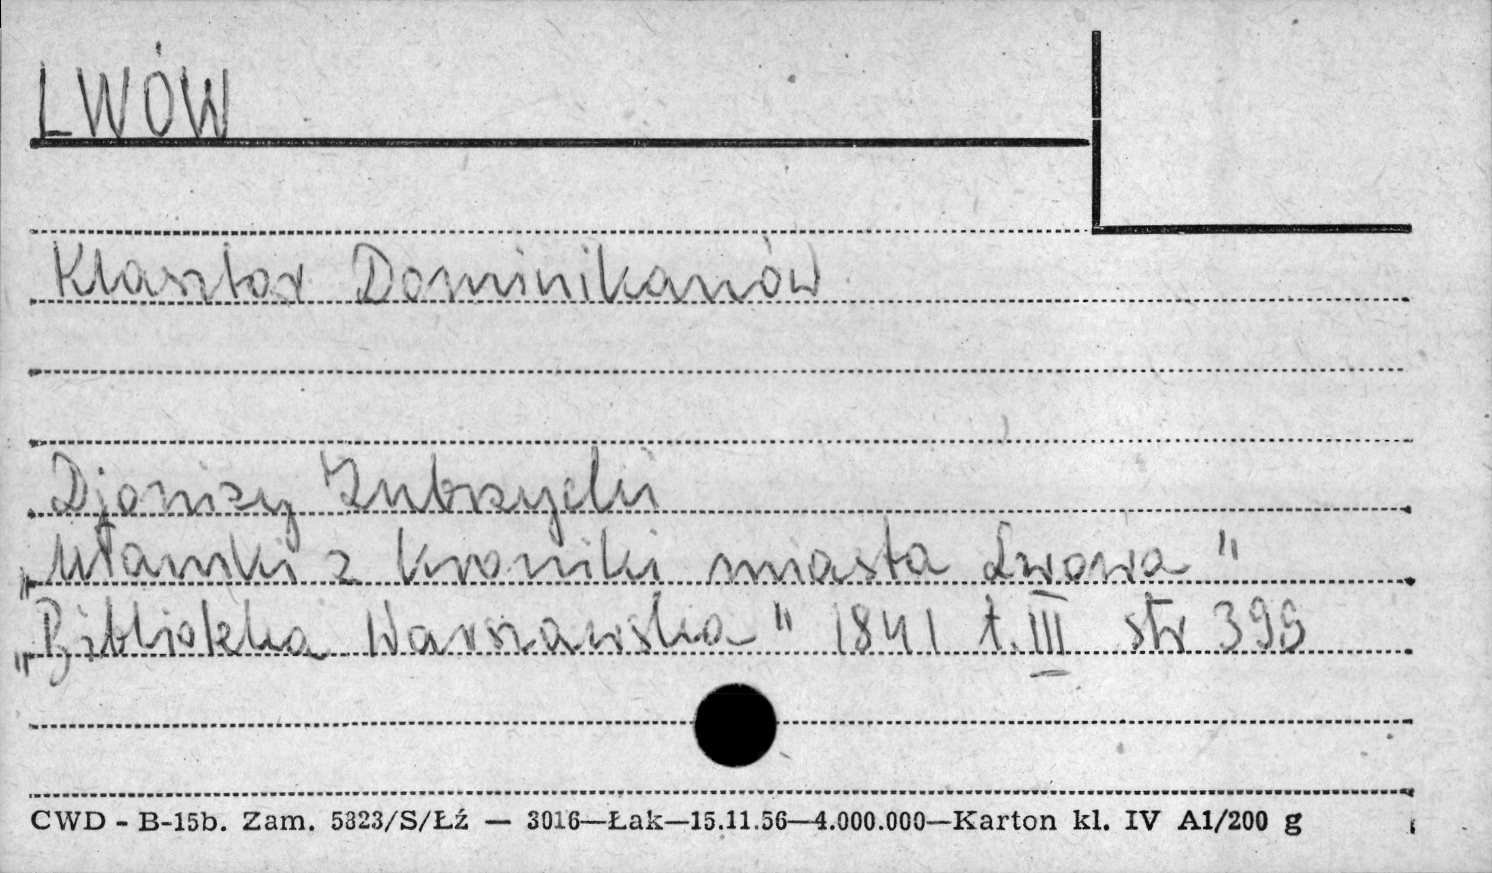 LWÓW
Klasztor Dominikanów
Djonizy Zubrzycki
„Ułamki z kroniki miasta Lwowa"
„Biblioteka Warszawska" 1841 t. III str 399
CWD - B-15b. Zam. 5323/S/Łź — 3016—Łak—15.11.56—4.000.000—Karton kl. IV A1/200 g